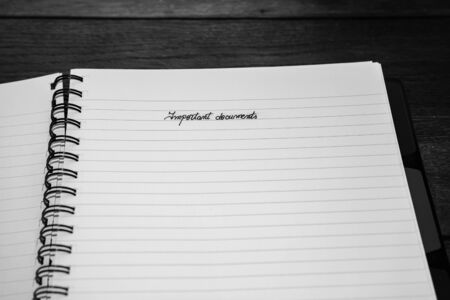 Important documents